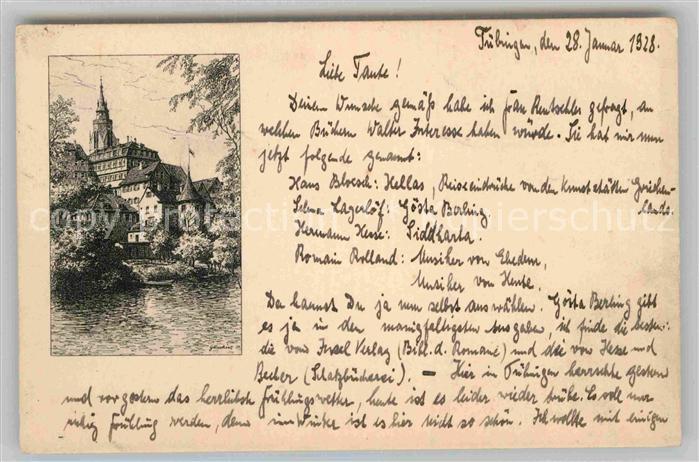 Tübingen, den 28. Januar 1928.
Liebe Tante!
Deinem Wunsche gemäß habe ich Frau Rentschler gefragt, an
welchen Büchern Walter Interesse haben würde. Sie hat mir nun
jetzt folgende genannt:
Hans Bloesch: Hellas, Reiseeindrücke von den Kunststätten Griechen-
lands.
Selma Lagerlöf: Gösta Berling.
Hermann Hesse: Siddharta.
Romain Rolland: Musiker von Ehedem,
Musiker von Heute.
Da kannst Du ja nun selbst auswählen. Gösta Berling gibt
es ja in den manigfaltigsten Ausgaben, ich finde die besten:
die vom Insel Verlag (Bibl. d. Romane) und die von Hesse und
Becker (Schatzbücherei). – Hier in Tübingen herrschte gestern
und vorgestern das herrlichste Frühlingswetter, heute ist es leider wieder trübe. Es soll nur
ruhig Frühling werden, denn im Winter ist es hier nicht so schön. Ich wollte mit einigen